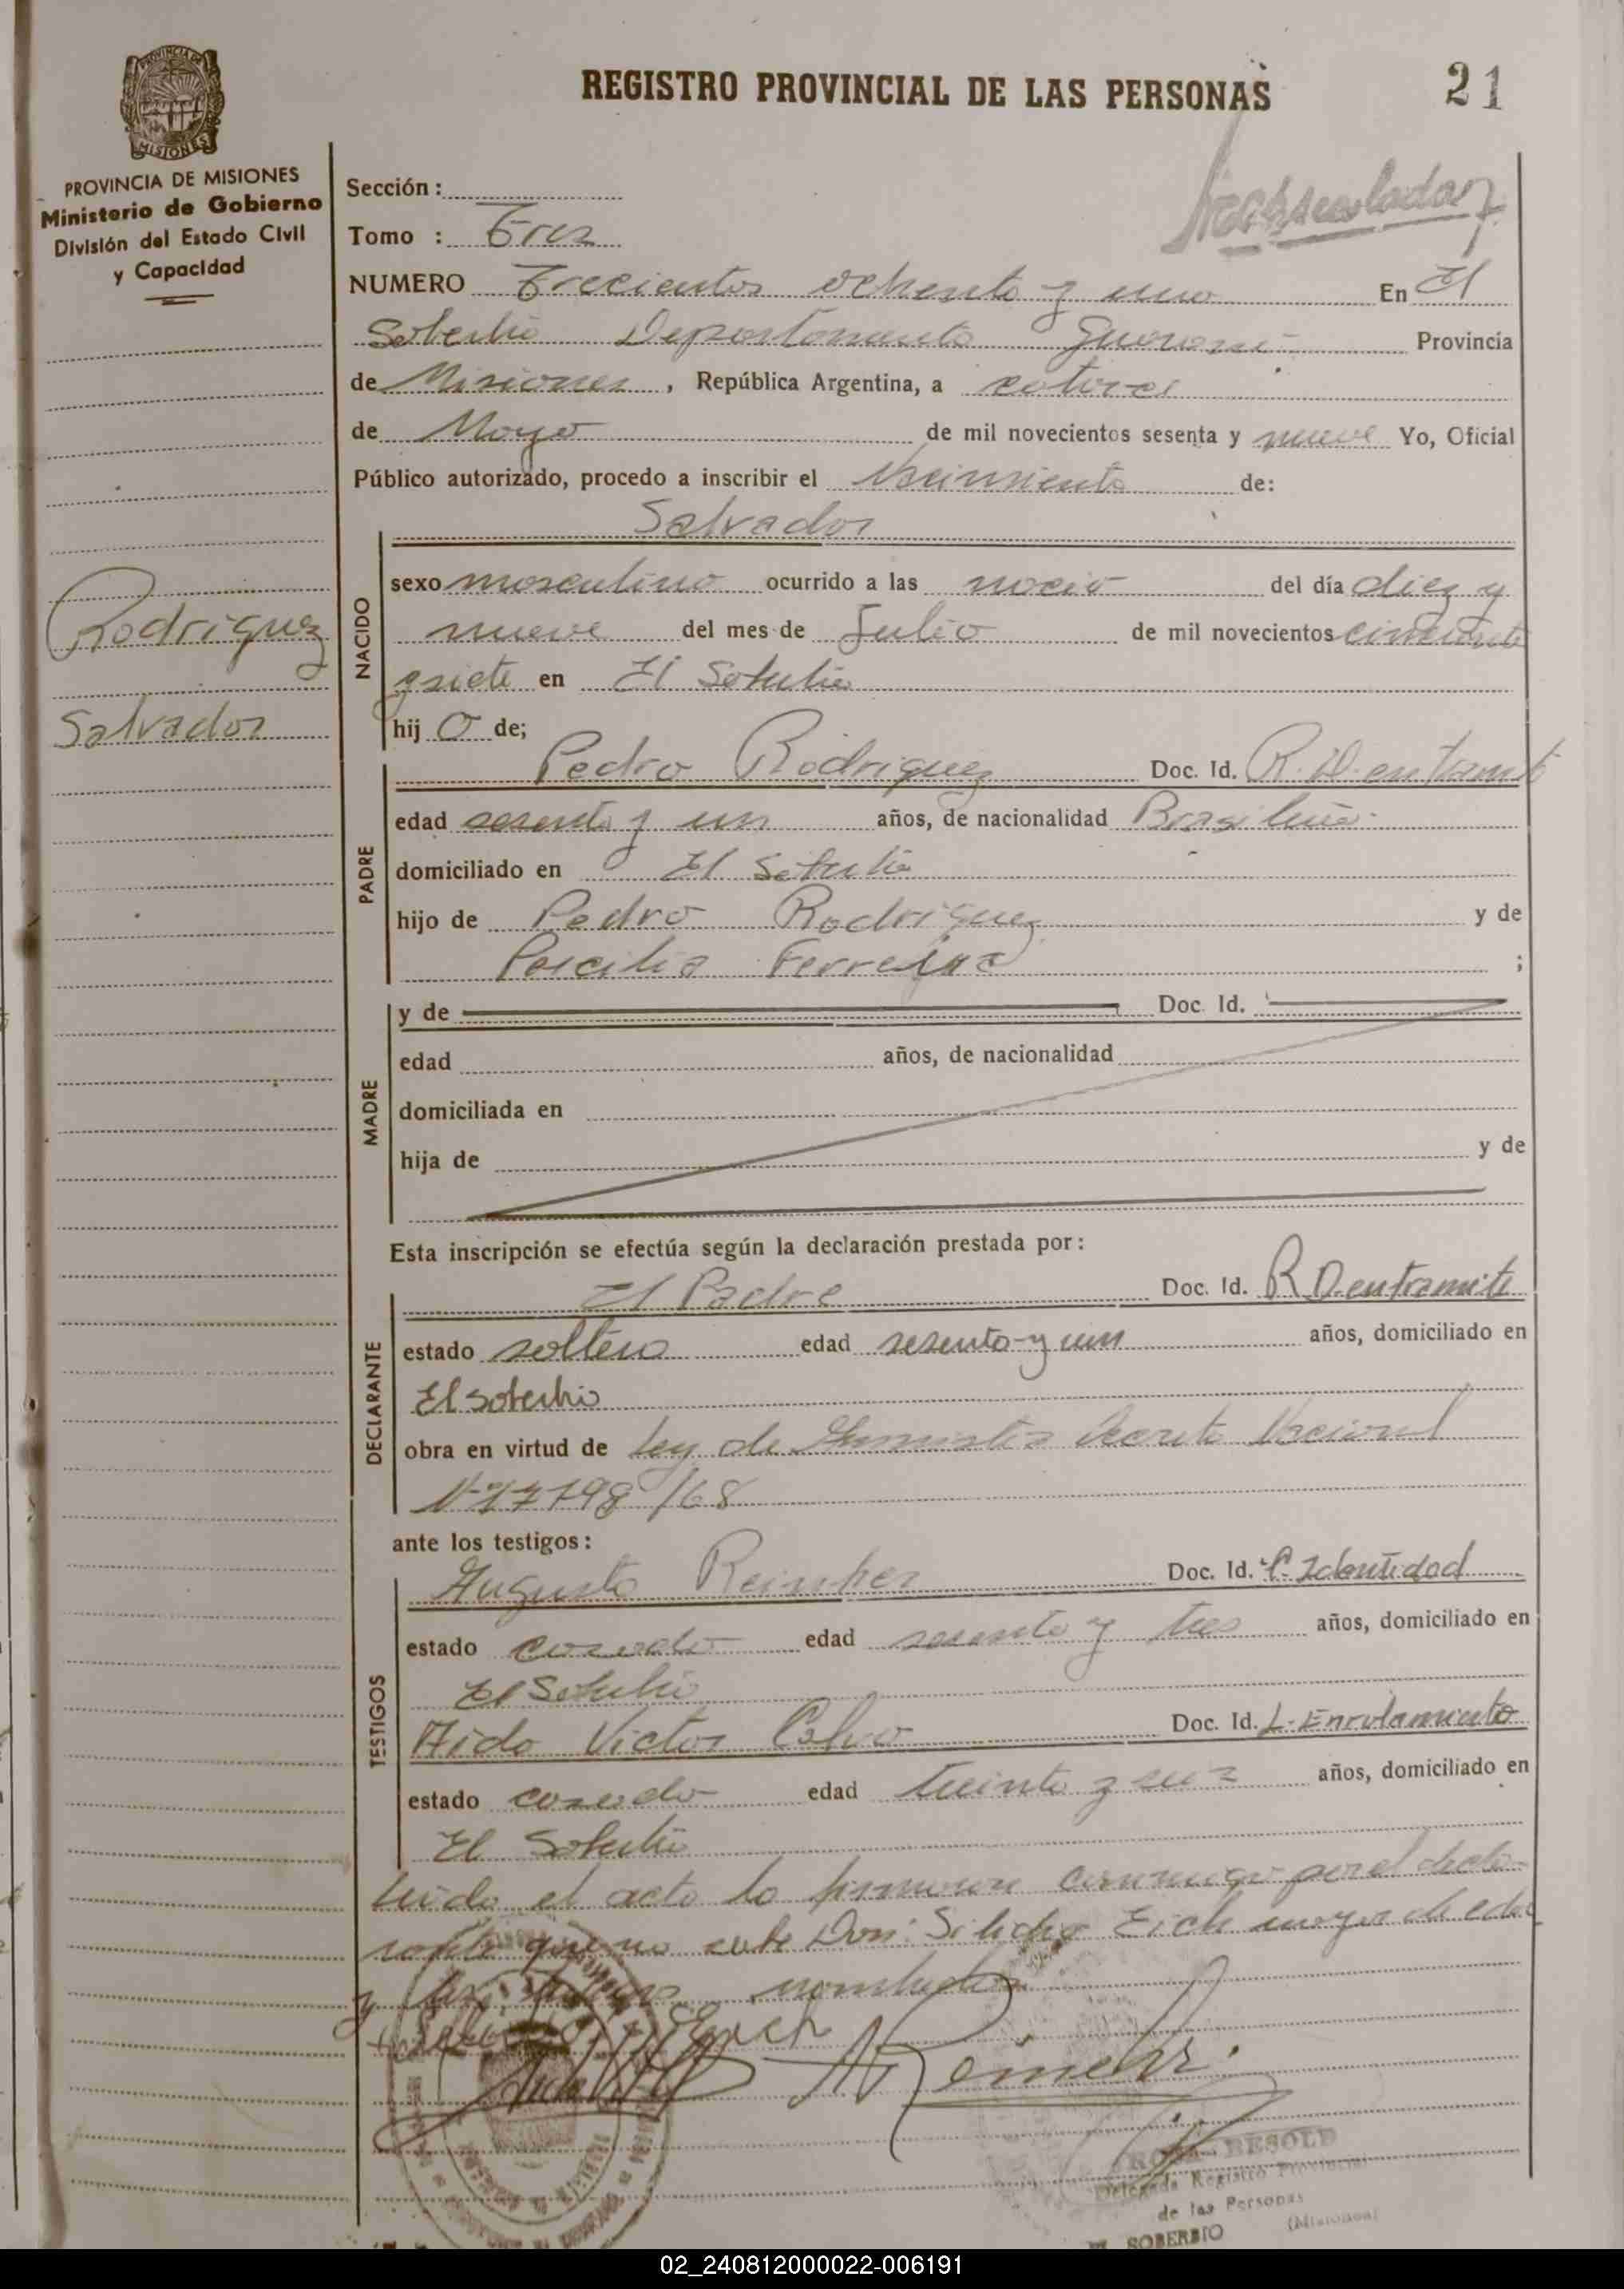 REGISTRO PROVINCIAL DE LAS PERSONAS
21
MISIONES
PROVINCIA DE MISIONES
Ministerio de Gobierno
División del Estado Civil
y Capacidad
Sección :
Tomo : Tres
NUMERO Trecientos ochento y uno En El
Soberbio Departamento Guarani Provincia
de Misiones , República Argentina, a catorce
de Mayo de mil novecientos sesenta y nueve Yo, Oficial
Público autorizado, procedo a inscribir el Nacimiento de:
Salvador
Rodriguez
Salvador
NACIDO
sexo masculino ocurrido a las del día diez y
nueve del mes de Julio de mil novecientos cincuenta
y siete en El Soberbio
hij o de;
PADRE
Pedro Rodriguez Doc. Id. R.D. en tramite
edad sesenta y un años, de nacionalidad Brasileña
domiciliado en El Soberbio
hijo de Pedro Rodriguez y de
Ferreira ;
MADRE
y de Doc. Id.
edad años, de nacionalidad
domiciliada en
hija de y de
Esta inscripción se efectúa según la declaración prestada por:
DECLARANTE
El Padre Doc. Id. R D. en tramite
estado soltero edad sesenta y un años, domiciliado en
El Soberbio
obra en virtud de Ley de Amnistia Decreto Nacional
Nº 17798/68
ante los testigos:
TESTIGOS
Augusto Doc. Id. C. Identidad
estado casado edad sesenta y tres años, domiciliado en
El Soberbio
Aido Victor Calvo Doc. Id. L. Enrolamiento
estado casado edad treinta y seis años, domiciliado en
El Soberbio
Leido el acta lo firmaron conmigo por el decla-
rante que no sabe Don: Eich mayor de edad
y los testigos nombrados
ROSA BESOLD
Delegada Registro Provincial
de las Personas
EL SOBERBIO (Misiones)
02_240812000022-006191